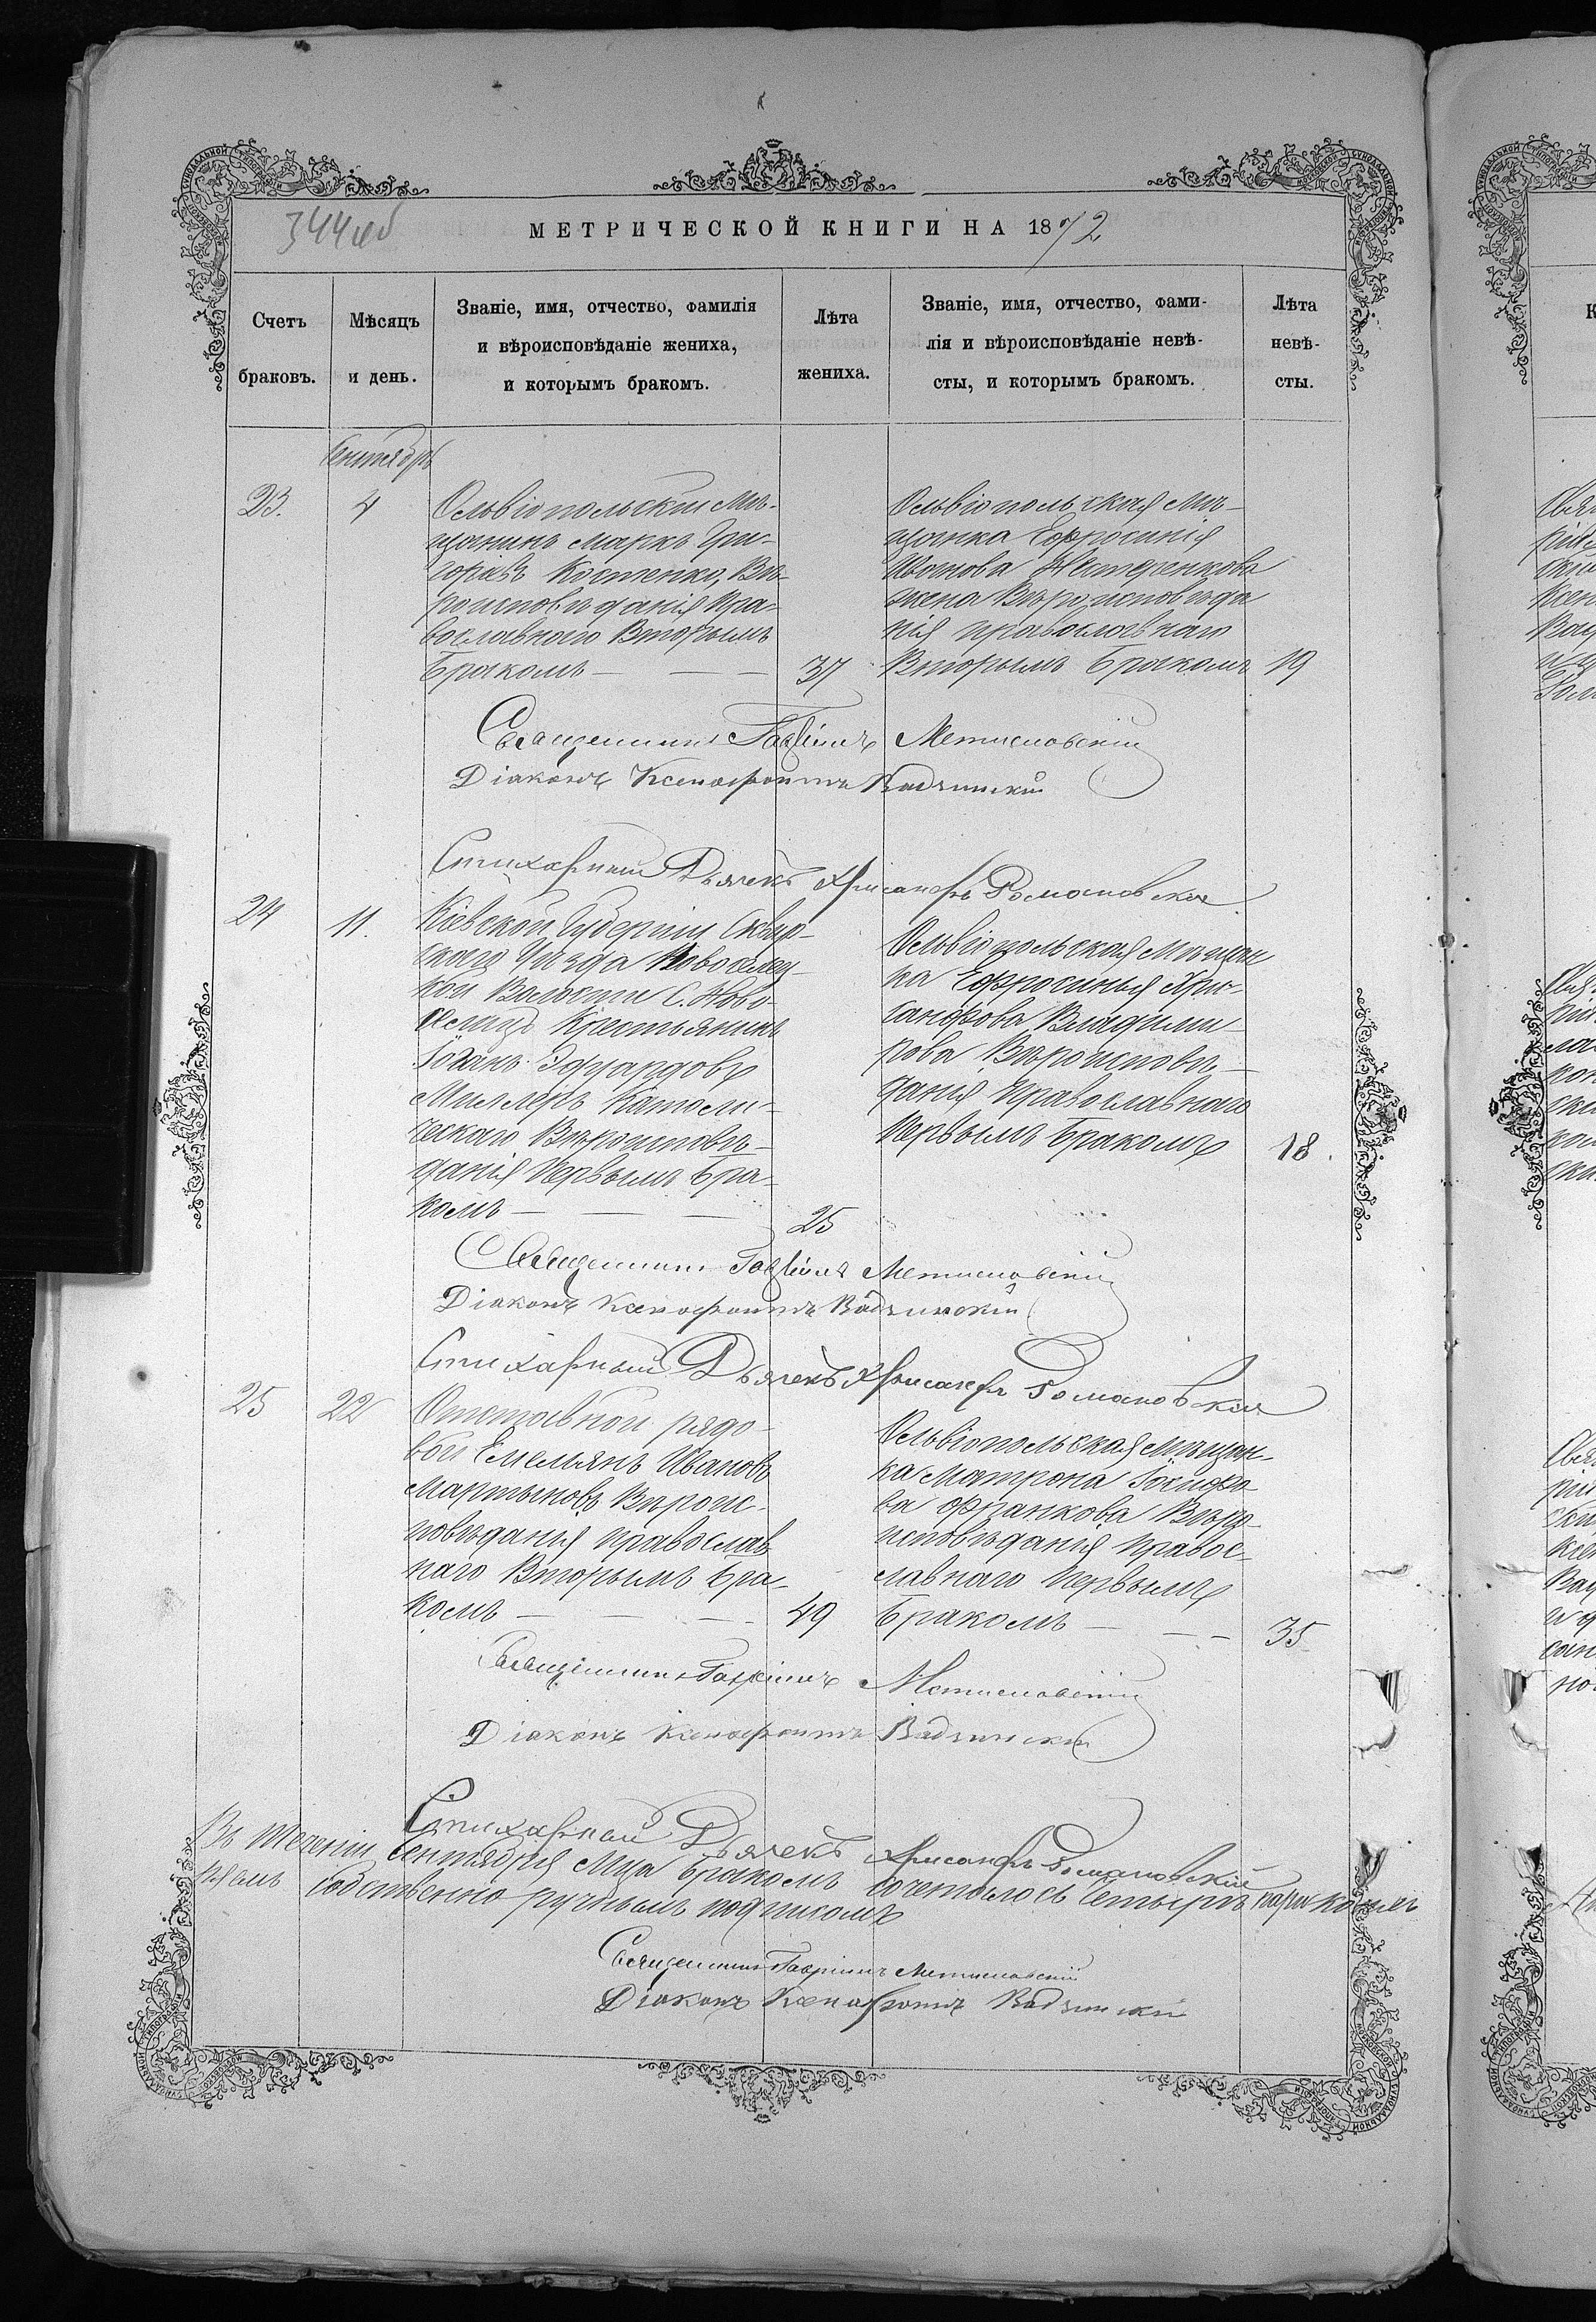 344 об
МЕТРИЧЕСКОЙ КНИГИ НА 1872
Счетъ браковъ.
Мѣсяцъ и день.
Званіе, имя, отчество, фамилія
и вѣроисповѣданіе жениха,
и которымъ бракомъ.
Лѣта жениха.
Званіе, имя, отчество, фами-
лія и вѣроисповѣданіе невѣ-
сты, и которымъ бракомъ.
Лѣта невѣ-
сты.
Сентябрь
23.
4
Ольвіопольскій Мѣ-
щанинъ Маркъ Гри-
горьевъ Костенко, Вѣ-
роисповѣданія Пра-
вославного Вторымъ
Бракомъ
37
Ольвіопольская Мѣ-
щанка Ефросинія
Иванова Нестеренкова
жена Вѣроисповѣда
нія православнаго
Вторымъ Бракомъ
19
Священникъ Гавріилъ Мстиславскій
Діаконъ Ксенофонтъ Вадзинскій
Стихарный Дьячекъ Хрисанфъ Романовскій
24
11.
Кіевской Губерніи Сквир-
скаго Уѣзда Новоселиц-
кой Волости С. Ново-
селицъ Крестьянинъ
Іоганъ Эдуардовъ
Миллеръ Католи-
ческаго Вѣроисповѣ-
данія Первымъ Бра-
комъ
25
Ольвіопольская Мѣщан
ка Ефросинья Хри-
санфова Владими-
рова Вѣроисповѣ-
данія Православнаго
Первымъ Бракомъ
18.
Священникъ Гавріилъ Мстиславскій
Діаконъ Ксенофонтъ Вадзинскій
Стихарный Дьячекъ Хрисанфъ Романовскій
25
22
Отставной рядо-
вой Емельянъ Ивановъ
Мартыновъ Вѣроис-
повѣданія православ
наго Вторымъ Бра-
комъ
49
Ольвіопольская Мѣщан-
ка Матрона Іосифо-
ва Франкова Вѣро-
исповѣданія Правос-
лавнаго Первымъ
Бракомъ
35
Священникъ Гавріилъ Мстиславскій
Діаконъ Ксенофонтъ Вадзинскій
Стихарный Дьячекъ Хрисанфъ Романовскій
Въ теченіи Сентября Мца Бракомъ Сочеталось Четыре пары
Собственно ручнымъ подписомъ
Священникъ Гавріилъ Мстиславскій
Діаконъ Ксенофонтъ Вадзинскій